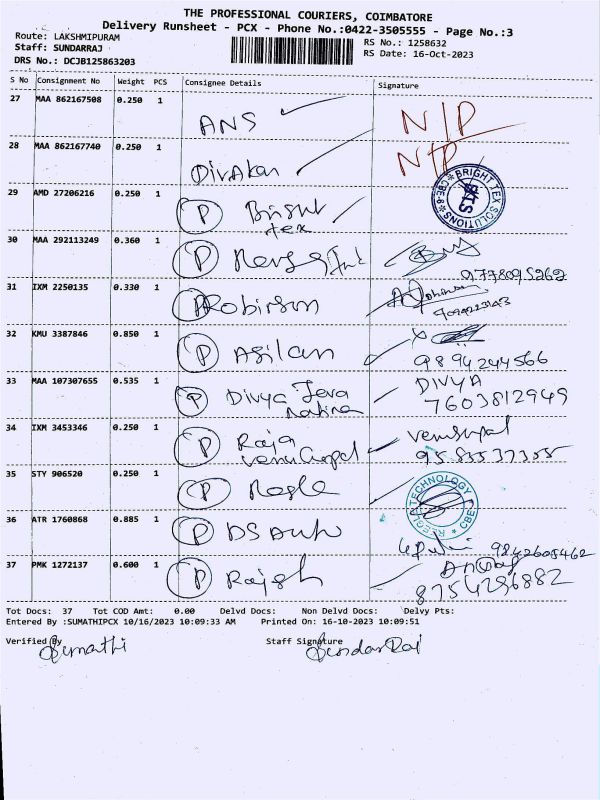 THE PROFESSIONAL COURIERS, COIMBATORE
Delivery Runsheet - PCX - Phone No.:0422-3505555 - Page No.:3
Route: LAKSHMIPURAM
RS No.: 1258632
Staff: SUNDARRAJ
RS Date: 16-Oct-2023
DRS No.: DCJB125863203
S No Consignment No Weight PCS Consignee Details Signature
27 MAA 862167508 0.250 1 ANS N/P
28 MAA 862167740 0.250 1 DivAkan N/P
29 AMD 27206216 0.250 1 P Bright Tex
BRIGHT TEX SOLUTIONS * CBE-6 *
BTS
30 MAA 292113249 0.360 1 P
31 IXM 2250135 0.330 1 Robinson
32 KMU 3387846 0.850 1 P Agilan
9894244566
33 MAA 107307655 0.535 1 P Divya Jeva DIVYA
7603812949
34 IXM 3453346 0.250 1 P Raja Venugopal Venugopal
35 STY 906520 0.250 1 P
TECHNOLOGY * CBE *
36 ATR 1760868 0.885 1 P DS Auto
9842605462
37 PMK 1272137 0.600 1 P Rajesh
8754296882
Tot Docs: 37 Tot COD Amt: 0.00 Delvd Docs: Non Delvd Docs: Delvy Pts:
Entered By :SUMATHIPCX 10/16/2023 10:09:33 AM Printed On: 16-10-2023 10:09:51
Verified By Staff Signature
Sumathi Sundar Raj